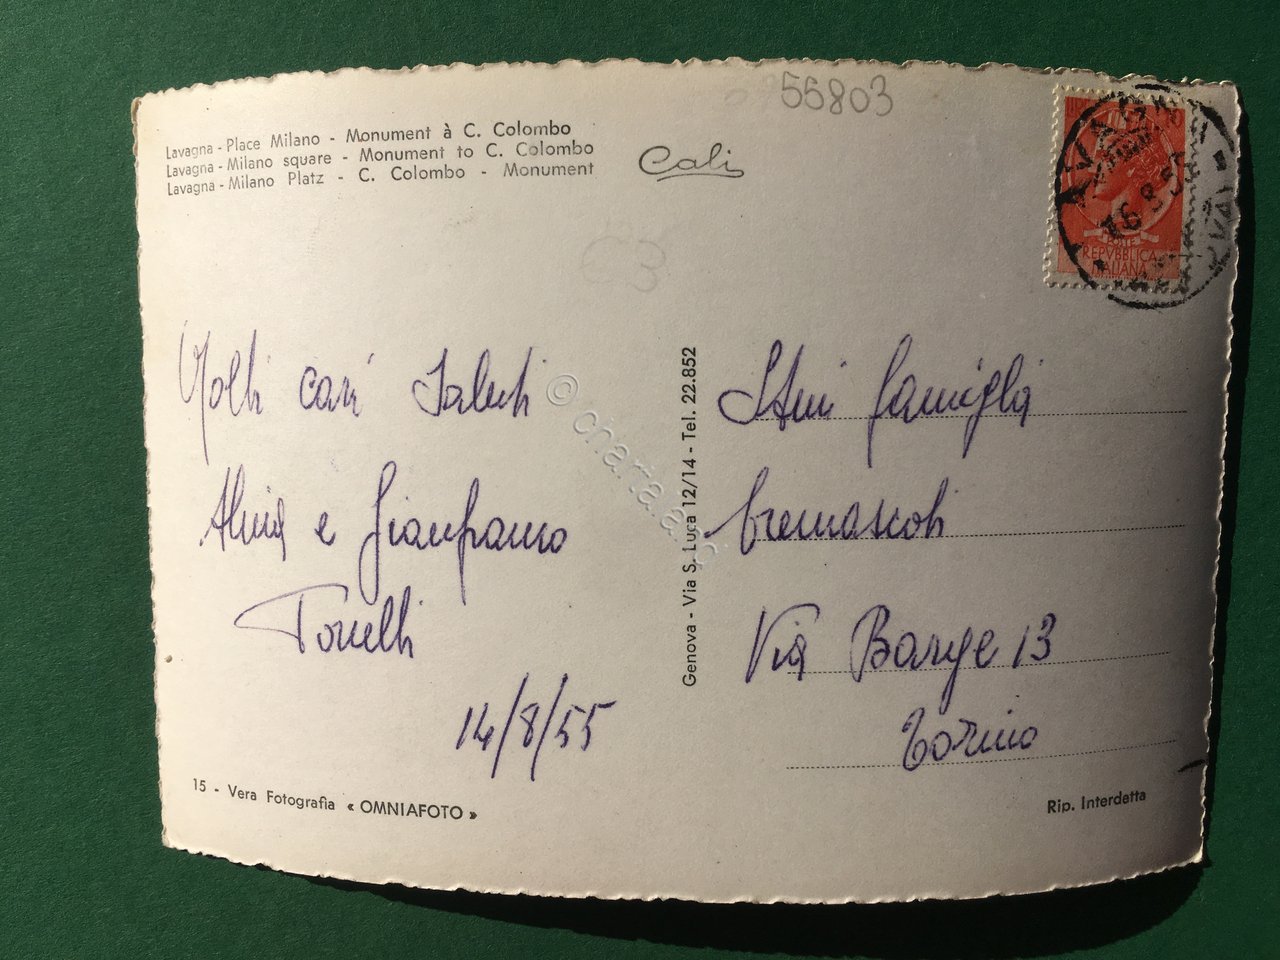 55803
Lavagna - Place Milano - Monument à C. Colombo
Lavagna - Milano square - Monument to C. Colombo
Lavagna - Milano Platz - C. Colombo - Monument
Cali
LAVAGNA
16.8.55
POSTE
REPVBBLICA
ITALIANA
63
Molti cari saluti
e Gianfranco
Torelli
14/8/55
15 - Vera Fotografia « OMNIAFOTO »
Genova - Via S. Luca 12/14 - Tel. 22.852
famiglia
Cremascoli
Via Barge 13
Torino
Rip. Interdetta
© charta.a